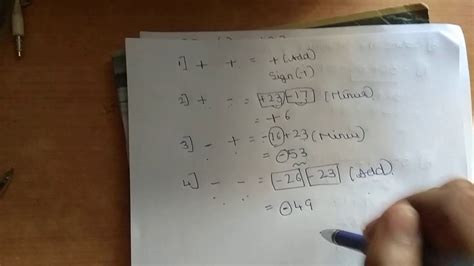 1] + + = + (Add)
Sign (+)
2] + - = +23 -17 (Minus)
= + 6
3] - + = -76+23 (Minus)
= -53
4] - - = -26 -23 (Add)
= -49